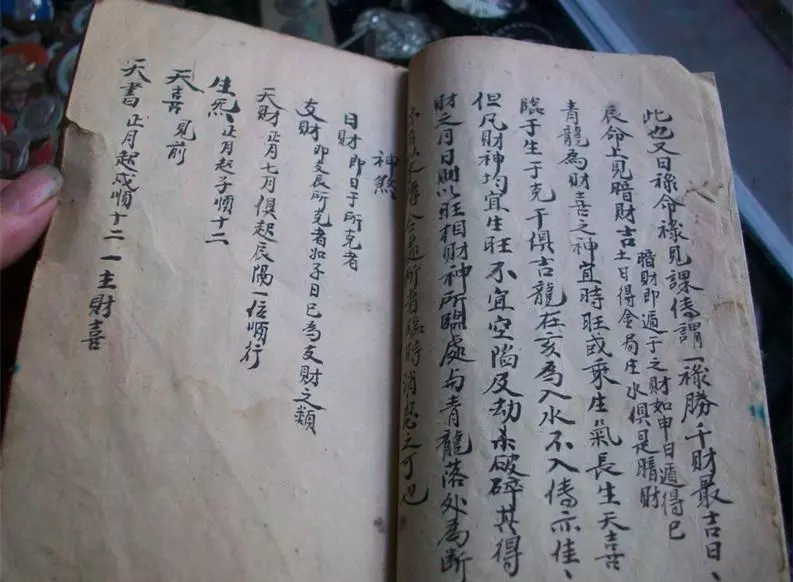 此也又日祿命祿見課傳謂一祿勝千財最吉日、
辰命上見暗財吉
暗財即遁于之財如申日遁得巳
土日得金局庄水俱是暗財
青龍為財喜之神宜時旺或乘生氣長生天喜
臨于生于克于俱吉龍在亥為入水不入傳亦佳、
但凡財神均宜生旺不宜空陷及劫杀破碎其得
財之月日則以旺相財神所臨處与青龍落处為斷
得合所臨時消息之可也
神煞
日財即日于所克者
支財即支辰所克者如子日巳為支財之類
天財正月七月俱起辰隔一位順行
生炁正月起子順十二
天喜見前
天書正月起戌順十二一主財喜